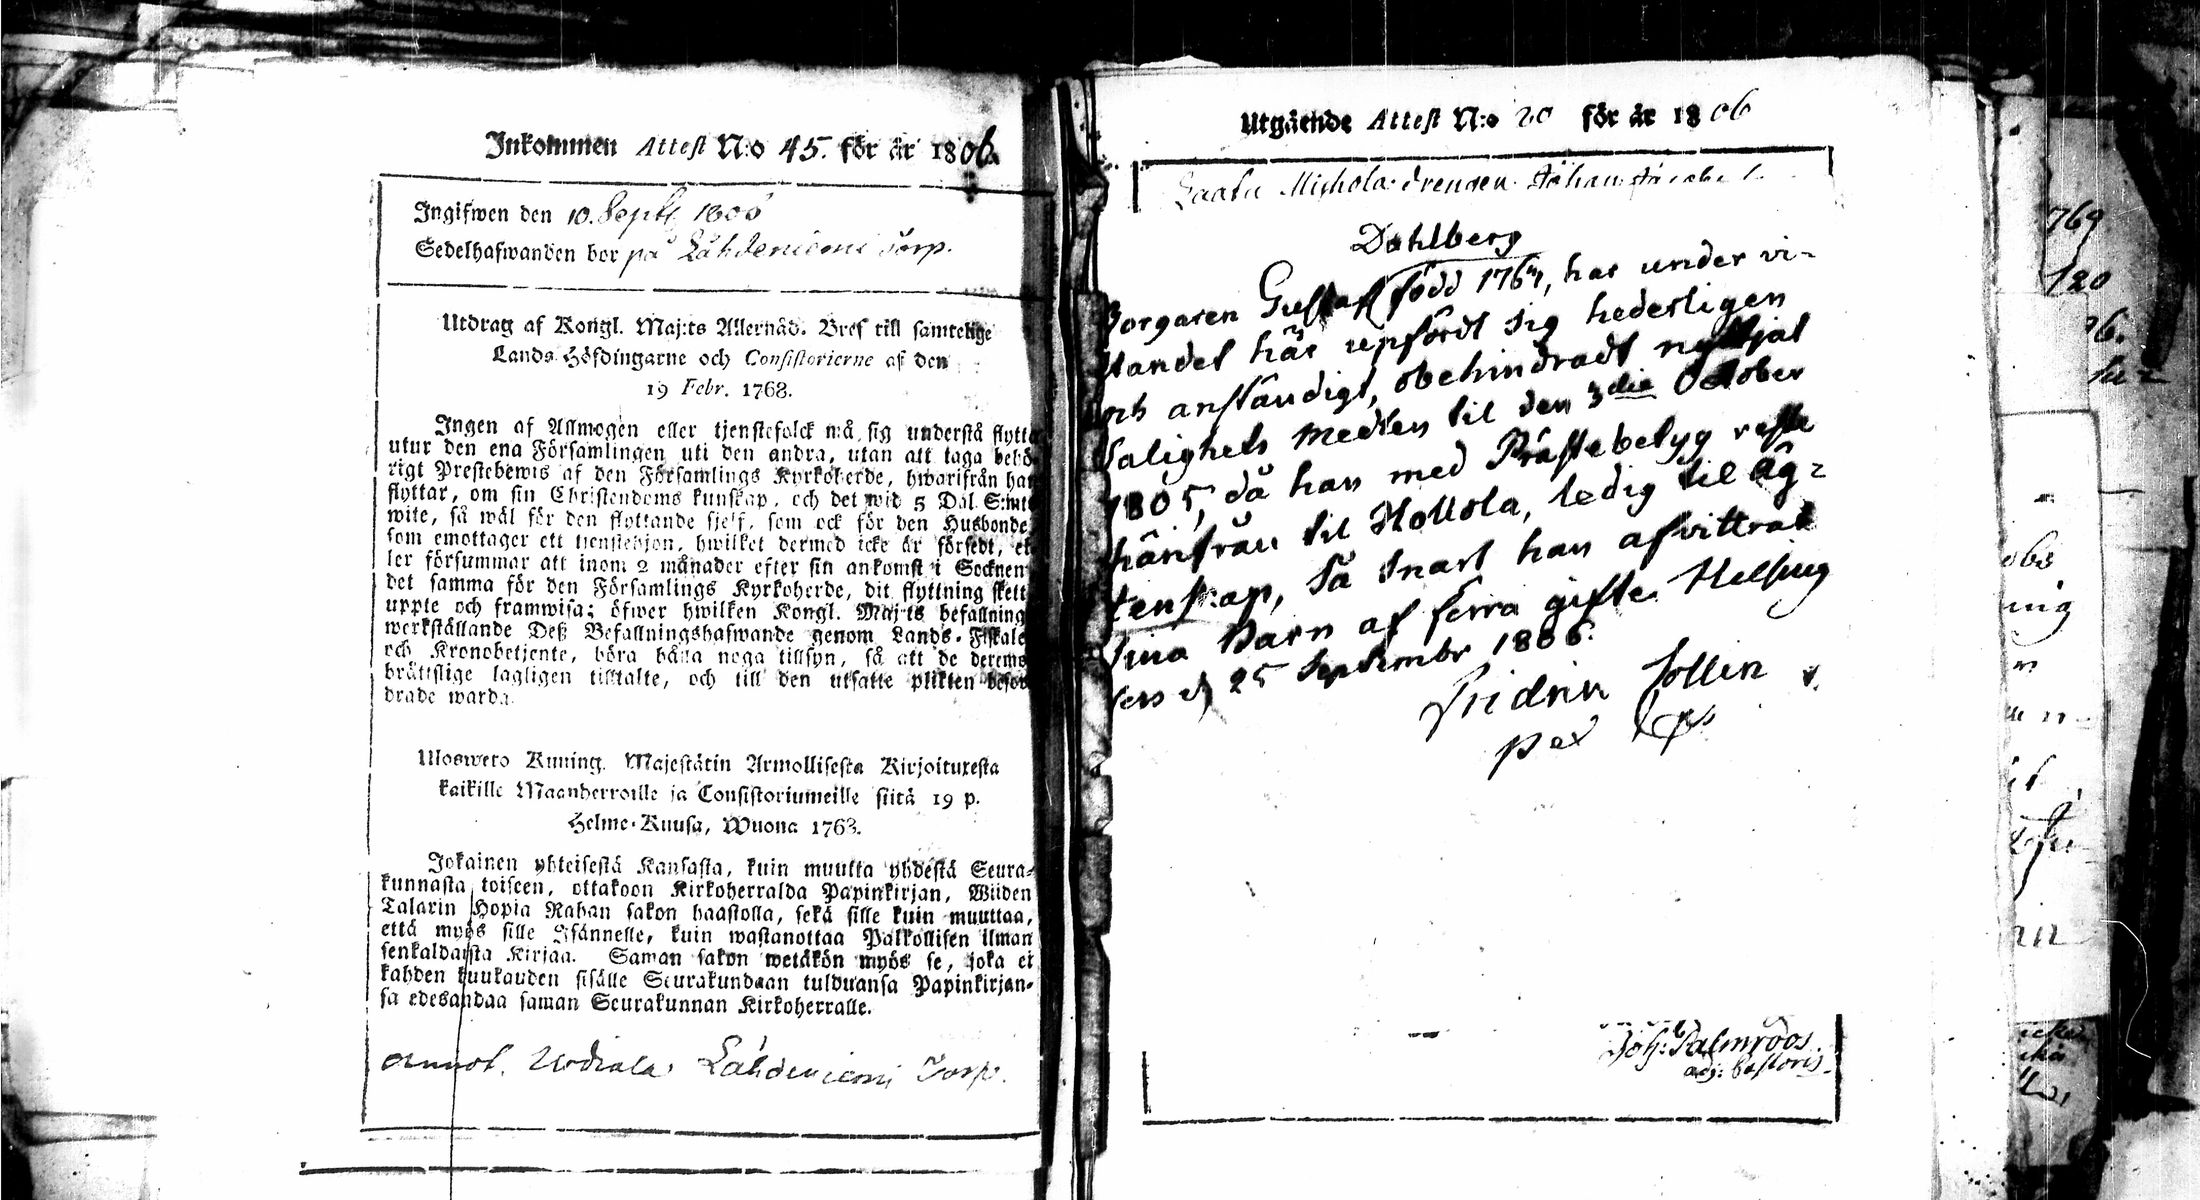 Inkommen Attest N:o 45. för år 1806.
Ingifwen den 10. Sept. 1806
Sedelhafwanden bor på Lähdeniemi Torp.
Utdrag af Kongl. Maj:ts Allernåd. Bref till samtelige
Lands-Höfdingarne och Consistorierne af den
19 Febr. 1768.
Ingen af Allmogen eller tjenstefolck må sig understå flytta
utur den ena Församlingen uti den andra, utan att taga behö-
rigt Prestebewis af den Församlings Kyrkoherde, hwarifrån han
flyttar, om sin Christendoms kunskap, och det wid 5 Dal. S:mts
wite, så wäl för den flyttande sjelf, som ock för den Husbonde,
som emottager ett tjenstehjon, hwilket dermed icke är försedt, el-
ler försummar att inom 2 månader efter sin ankomst i Socknen
det samma för den Församlings Kyrkoherde, dit flyttning skett
uppte och framwisa; öfwer hwilken Kongl. Maj:ts befallning
werkställande Deß Befallningshafwande genom Lands-Fiskale
och Kronobetjente, böra hålla noga tillsyn, så att de deremot
bråttslige lagligen tilltalte, och till den utsatte plikten befor-
drade warda.
Uloswето Kuning. Majestätin Armollisesta Kirjoituxesta
kaikille Maanherroille ja Consistoriumeille siitä 19 p.
Helme-Kuusa, Wuona 1768.
Jokainen yhteisestä Kansasta, kuin muutta yhdestä Seura-
kunnasta toiseen, ottakoon Kirkoherralda Papinkirjan, Wiiden
Talarin Hopia Rahan sakon haastolla, sekä sille kuin muuttaa,
että myös sille Isännelle, kuin wastanottaa Palkollisen ilman
senkaldaista Kirjaa. Saman sakon wetäkön myös se, joka ei
kahden kuukauden sisälle Seurakundaan tulduansa Papinkirjan-
sa edesandaa saman Seurakunnan Kirkoherralle.
Annot. Urdiala Lähdeniemi Torp.
Utgående Attest N:o 20 för år 1806
Dahlberg
Borgaren Gustaf född 1767, har under vi-
standet här upfördt sig hederligen
och anständigt, obehindradt nyttjat
Salighets medlen til den 3die October
1805, då han med Prästebetyg reste
härifrån til Hollola, ledig til äg-
tenskap, så snart han afvittrat
sina Barn af förra gifte. Helsing
fors d 25 Septembr 1806.
Joh: Palmroos
adj: Pastoris.